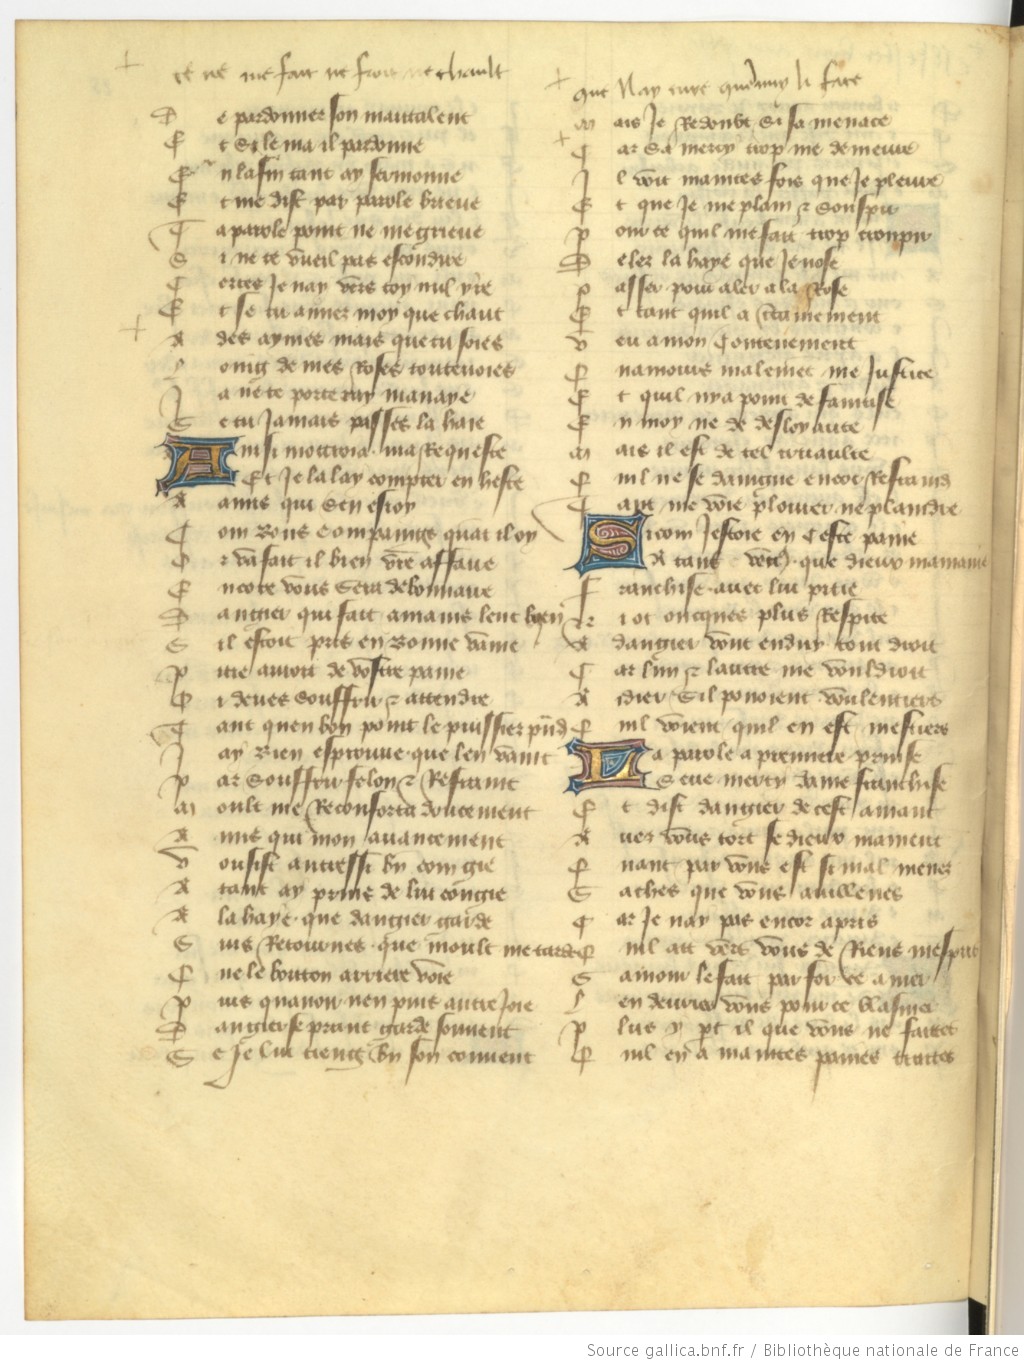 ce ne me fait ne froit ne chault
D e pardonner son mautalent
E t si le ma il pardonne
E n la fin tant ay sermonne
E t me dist par parole brieue
T a parole point ne me grieue
S i ne te vueil pas escondire
C ertes Je nay vers toy nul yre
E t se tu aimes moy que chaut
A des aymes mais que tu soies
L oing de mes Roses toutesuoies
J a ne te porteray manaye
S e tu Jamais passes la haie
A insi mottroia ma Requeste
Et Je la lay compter en heste
A amis qui sen esioy
C om bons compaings quant il oy
O r va fait il bien vre affaire
E ncore vous sera debonnaire
D angier qui fait amains leur boen
S il estoit pris en bonne vaine
P itie auroit de vostre paine
O r deues souffrir z attendre
T ant quen bon point le puissies prend
J ay bien esprouue que len vaint
P ar souffrir felon z Refraint
M oult me Reconforta doucement
A mis qui mon auancement
V ousist autressi bn com gie
A tant ay prins de lui congie
A la haye que dangier garde
S uis Retournes que moult me tarde
Q ue le bouton arriere voie
P uis quauoir nen puis autre Joie
D angier se prent garde souuent
S e Je lui tieng bn son conuent
que Nay enuie quennuy li face
M ais Je Redoubt si sa menace
C ar sa mercy trop me demeure
J l voit maintes fois que Je pleure
E t que Je me plain z souspir
P our ce quil me fait trop croupir
D eles la haye que Je nose
P asser pour aler a la Rose
E t tant quil a certainement
V eu a mon contenement
Q namours malemet me Justice
E t quil nya point de faintise
E n moy ne de desloyaute
M ais il est de tel cruaulte
Q uil ne se daingne encor Refraind
T ant me voie plourer ne plaindre
S i com Jestoie en ceste paine
A tant que dieux mamaine
F ranchise auec lui pitie
N i ot oncques plus Respite
A dangier vont enduy tout droit
C ar lun z lautre me vouldroit
A idier sil pouoient voulentiers
Q uil voient quil en est mestiers
L a parole a premiere prinse
Seue mercy dame franchise
E t dist dangier de cest amant
A ues vous tort se dieux mament
Q uant par vous est si mal menes
S aches que vous auillenes
C ar Je nay pas encor apris
Q uil ait vers vous de Riens mespris
S amour le fait par force amer
L en deuries vous pour ce blasmer
P lus y pt il que vous ne faittes
Q uil en a maintes paines traites
Source gallica.bnf.fr / Bibliothèque nationale de France